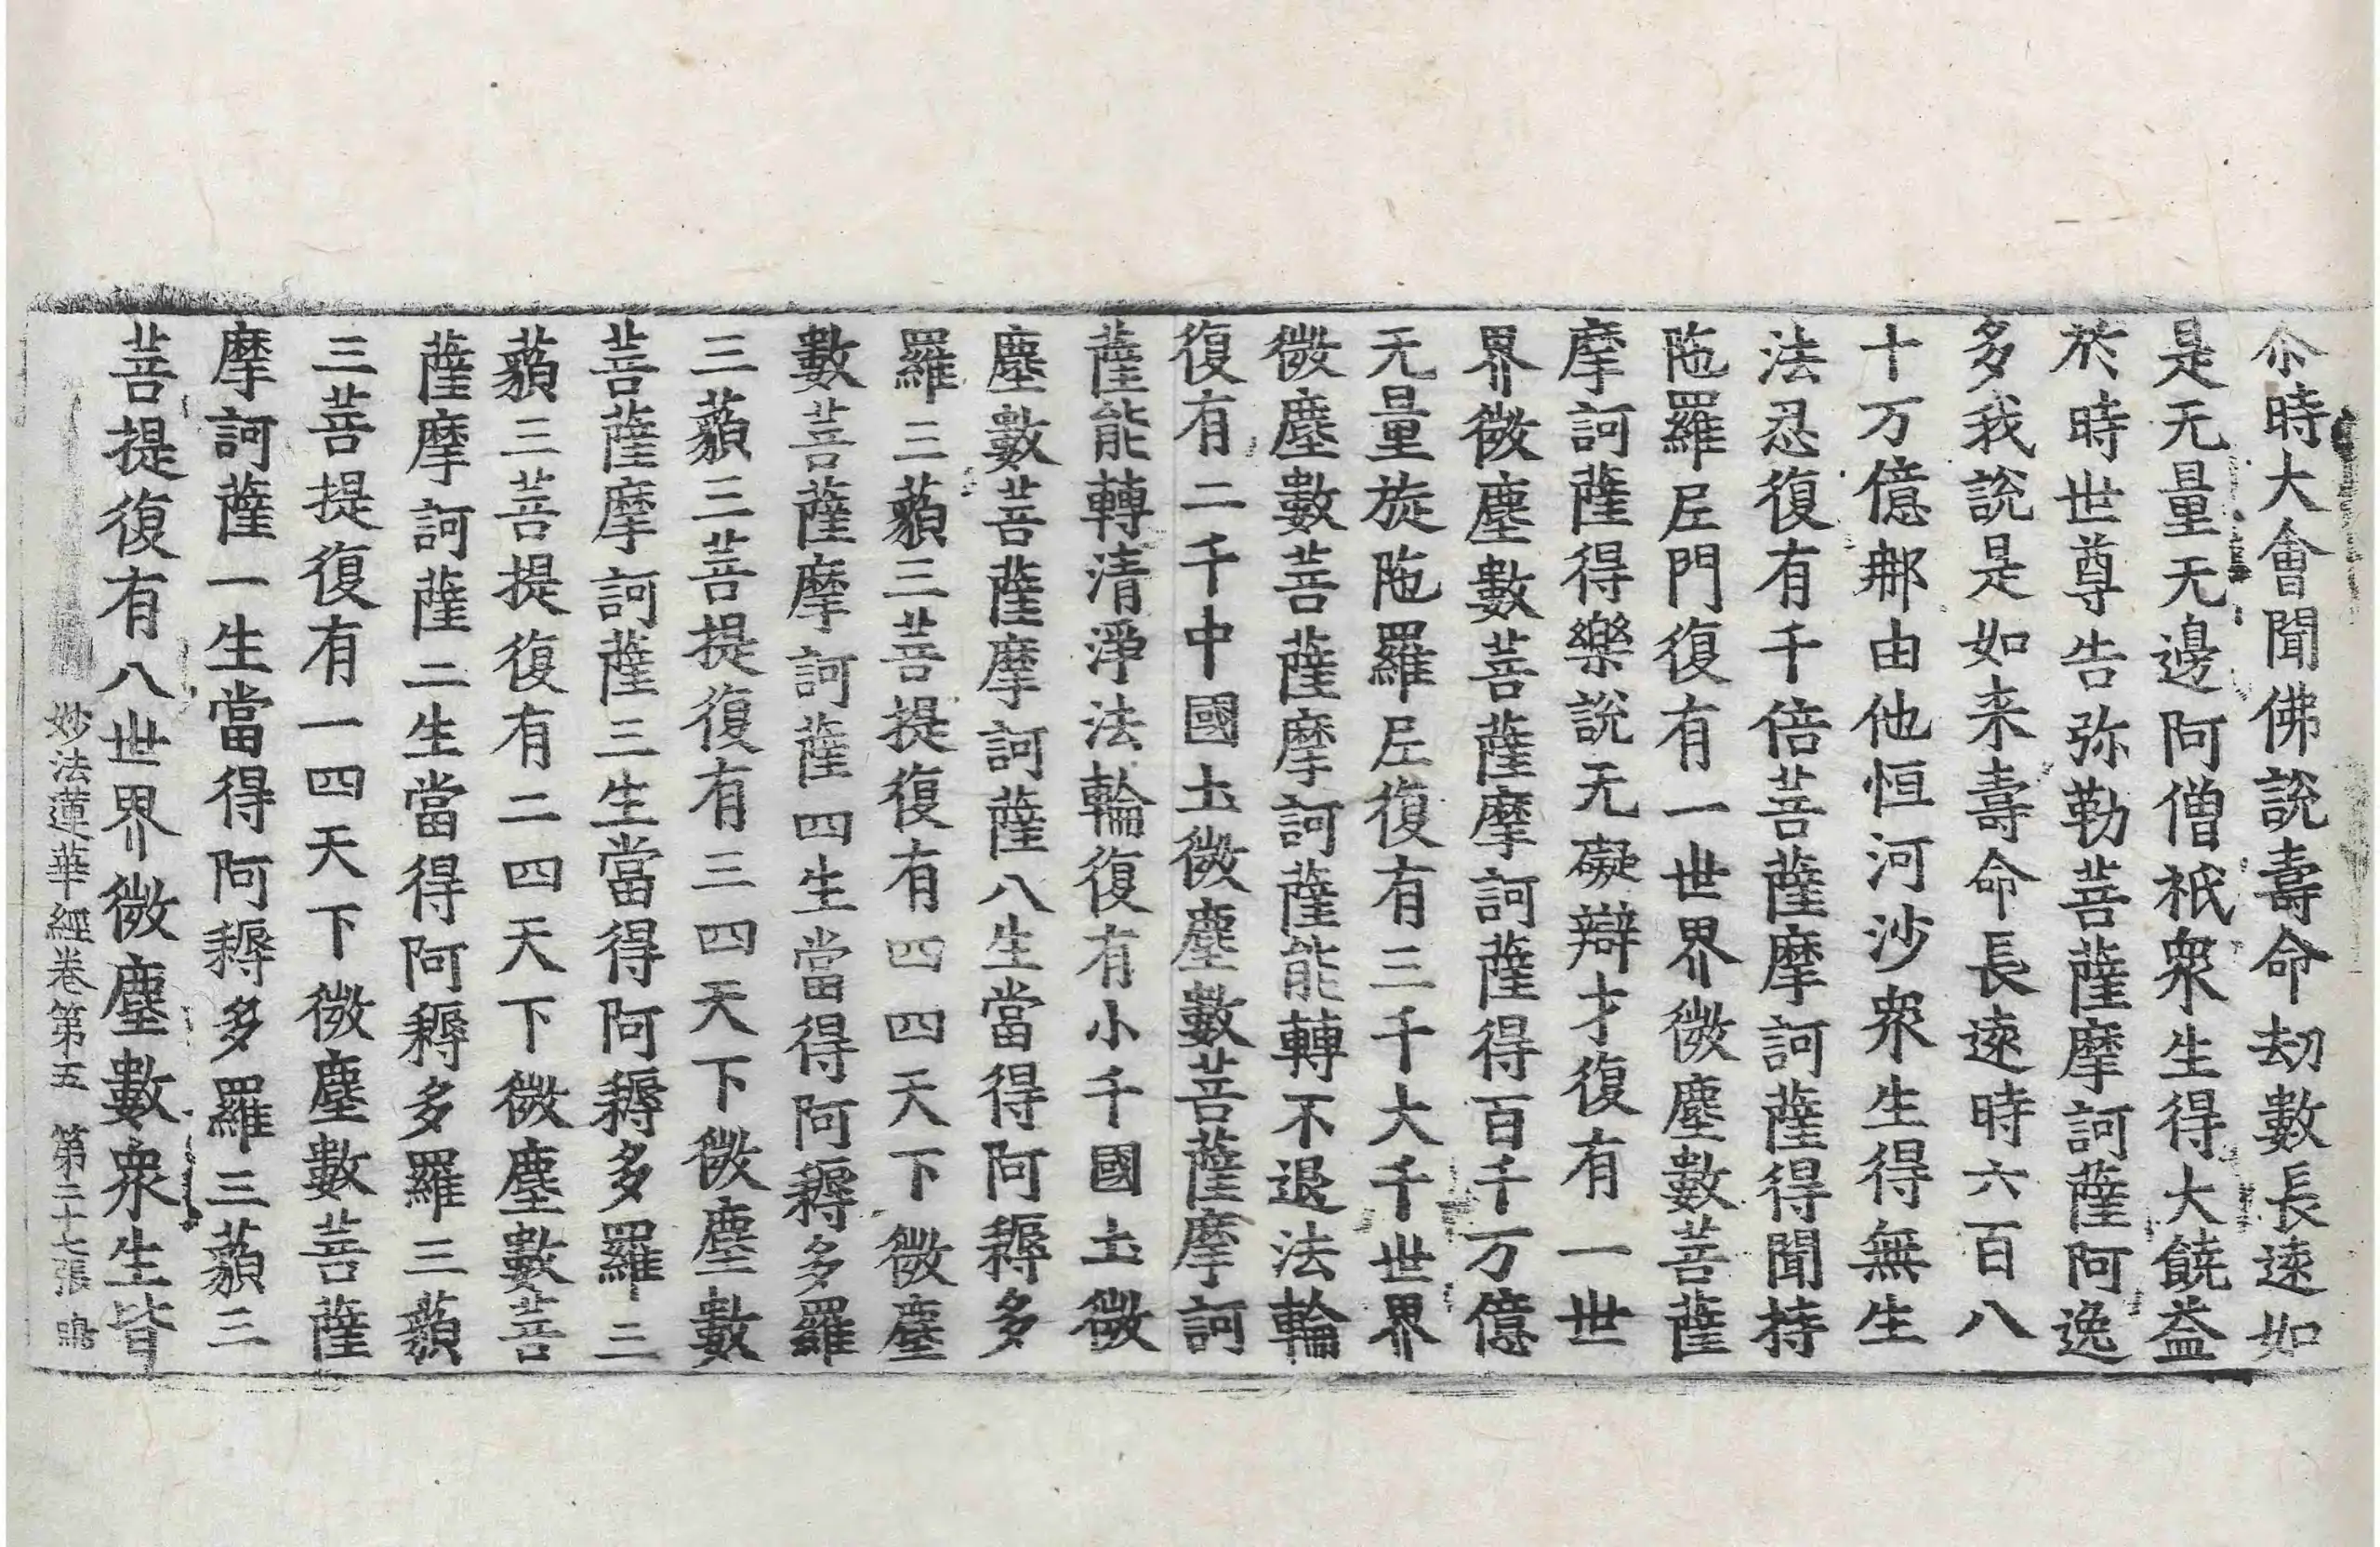 尒時大會聞佛說壽命劫數長遠如
是无量无邊阿僧祇衆生得大饒益
於時世尊告弥勒菩薩摩訶薩阿逸
多我說是如来壽命長遠時六百八
十万億那由他恒河沙衆生得無生
法忍復有千倍菩薩摩訶薩得聞持
陁羅尼門復有一世界微塵數菩薩
摩訶薩得樂說无礙辯才復有一世
界微塵數菩薩摩訶薩得百千万億
无量旋陁羅尼復有三千大千世界
微塵數菩薩摩訶薩能轉不退法輪
復有二千中國土微塵數菩薩摩訶
薩能轉清淨法輪復有小千國土微
塵數菩薩摩訶薩八生當得阿耨多
羅三藐三菩提復有四四天下微塵
數菩薩摩訶薩四生當得阿耨多羅
三藐三菩提復有三四天下微塵數
菩薩摩訶薩三生當得阿耨多羅三
藐三菩提復有二四天下微塵數菩
薩摩訶薩二生當得阿耨多羅三藐
三菩提復有一四天下微塵數菩薩
摩訶薩一生當得阿耨多羅三藐三
菩提復有八世界微塵數衆生皆
妙法蓮華經卷第五 第二十七張 鳴